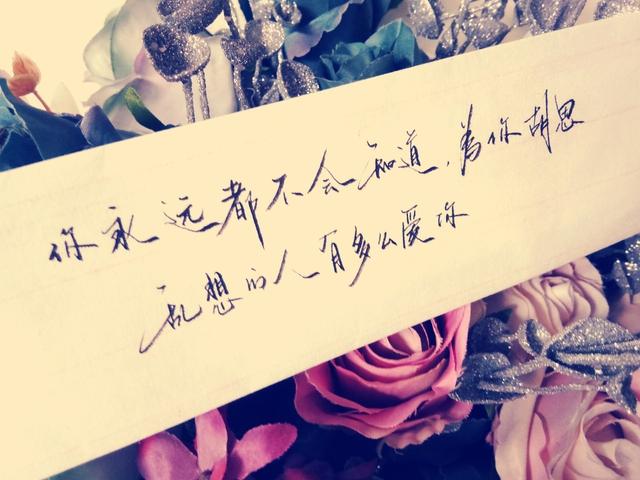 你永远都不会知道，為你胡思
乱想的人有多么愛你